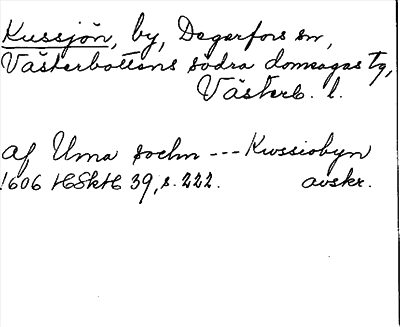 Kussjön, by, Degerfors sn,
Västerbottens södra domsagas tg,
Västerb. l.
af Uma sochn --- Kwssiobyn
1606 HSkH 39, s. 222. avskr.